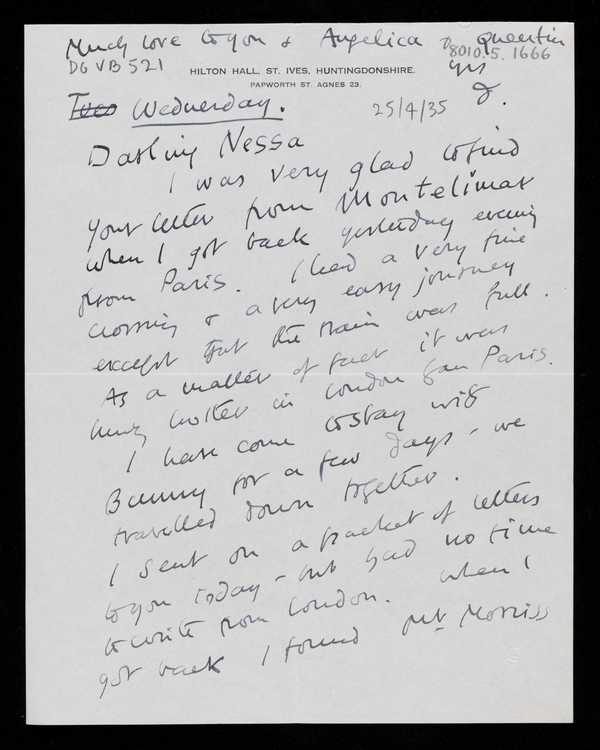 Much love to you & Angelica & Quentin
8010.5.1666
DG VB 521
yrs
HILTON HALL, ST. IVES, HUNTINGDONSHIRE.
PAPWORTH ST. AGNES 23.
D.
Tues Wednesday.
25/4/35
Darling Nessa
I was very glad to find
your letter from Montelimar
when I got back yesterday evening
from Paris. I had a very fine
crossing & a very easy journey
except that the train was full.
As a matter of fact it was
much hotter in London than Paris.
I have come to stay with
Bunny for a few days - we
travelled down together.
I sent on a packet of letters
to you today - but had no time
to write from London. When I
got back I found Mr Morriss